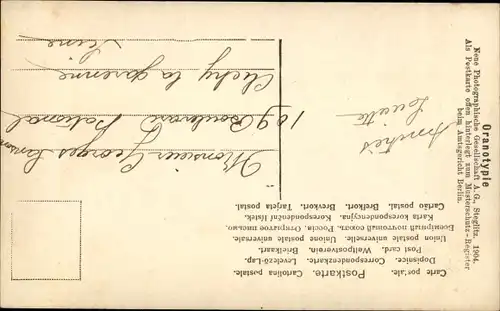 Postkarte.
Carte postale. Cartolina postale.
Dopisnice. Correspondenzkarte. Levelező-Lap.
Post card. Weltpostverein. Briefkaart.
Union postale universelle. Unione postale universale.
Всемірный почтовый союзъ. Россія. Открытое письмо.
Karta korespondencyjna. Korespondenční lístek.
Cartão postal. Brefkort. Brevkort. Tarjeta postal.
Amitiés
Lucette
Monsieur Georges
109 Boulevard
National
Clichy la garenne
Seine
Oranotypie
Neue Photographische Gesellschaft A. G., Steglitz. 1904.
Als Postkarte offen hinterlegt zum Musterschutz-Register
beim Amtsgericht Berlin.